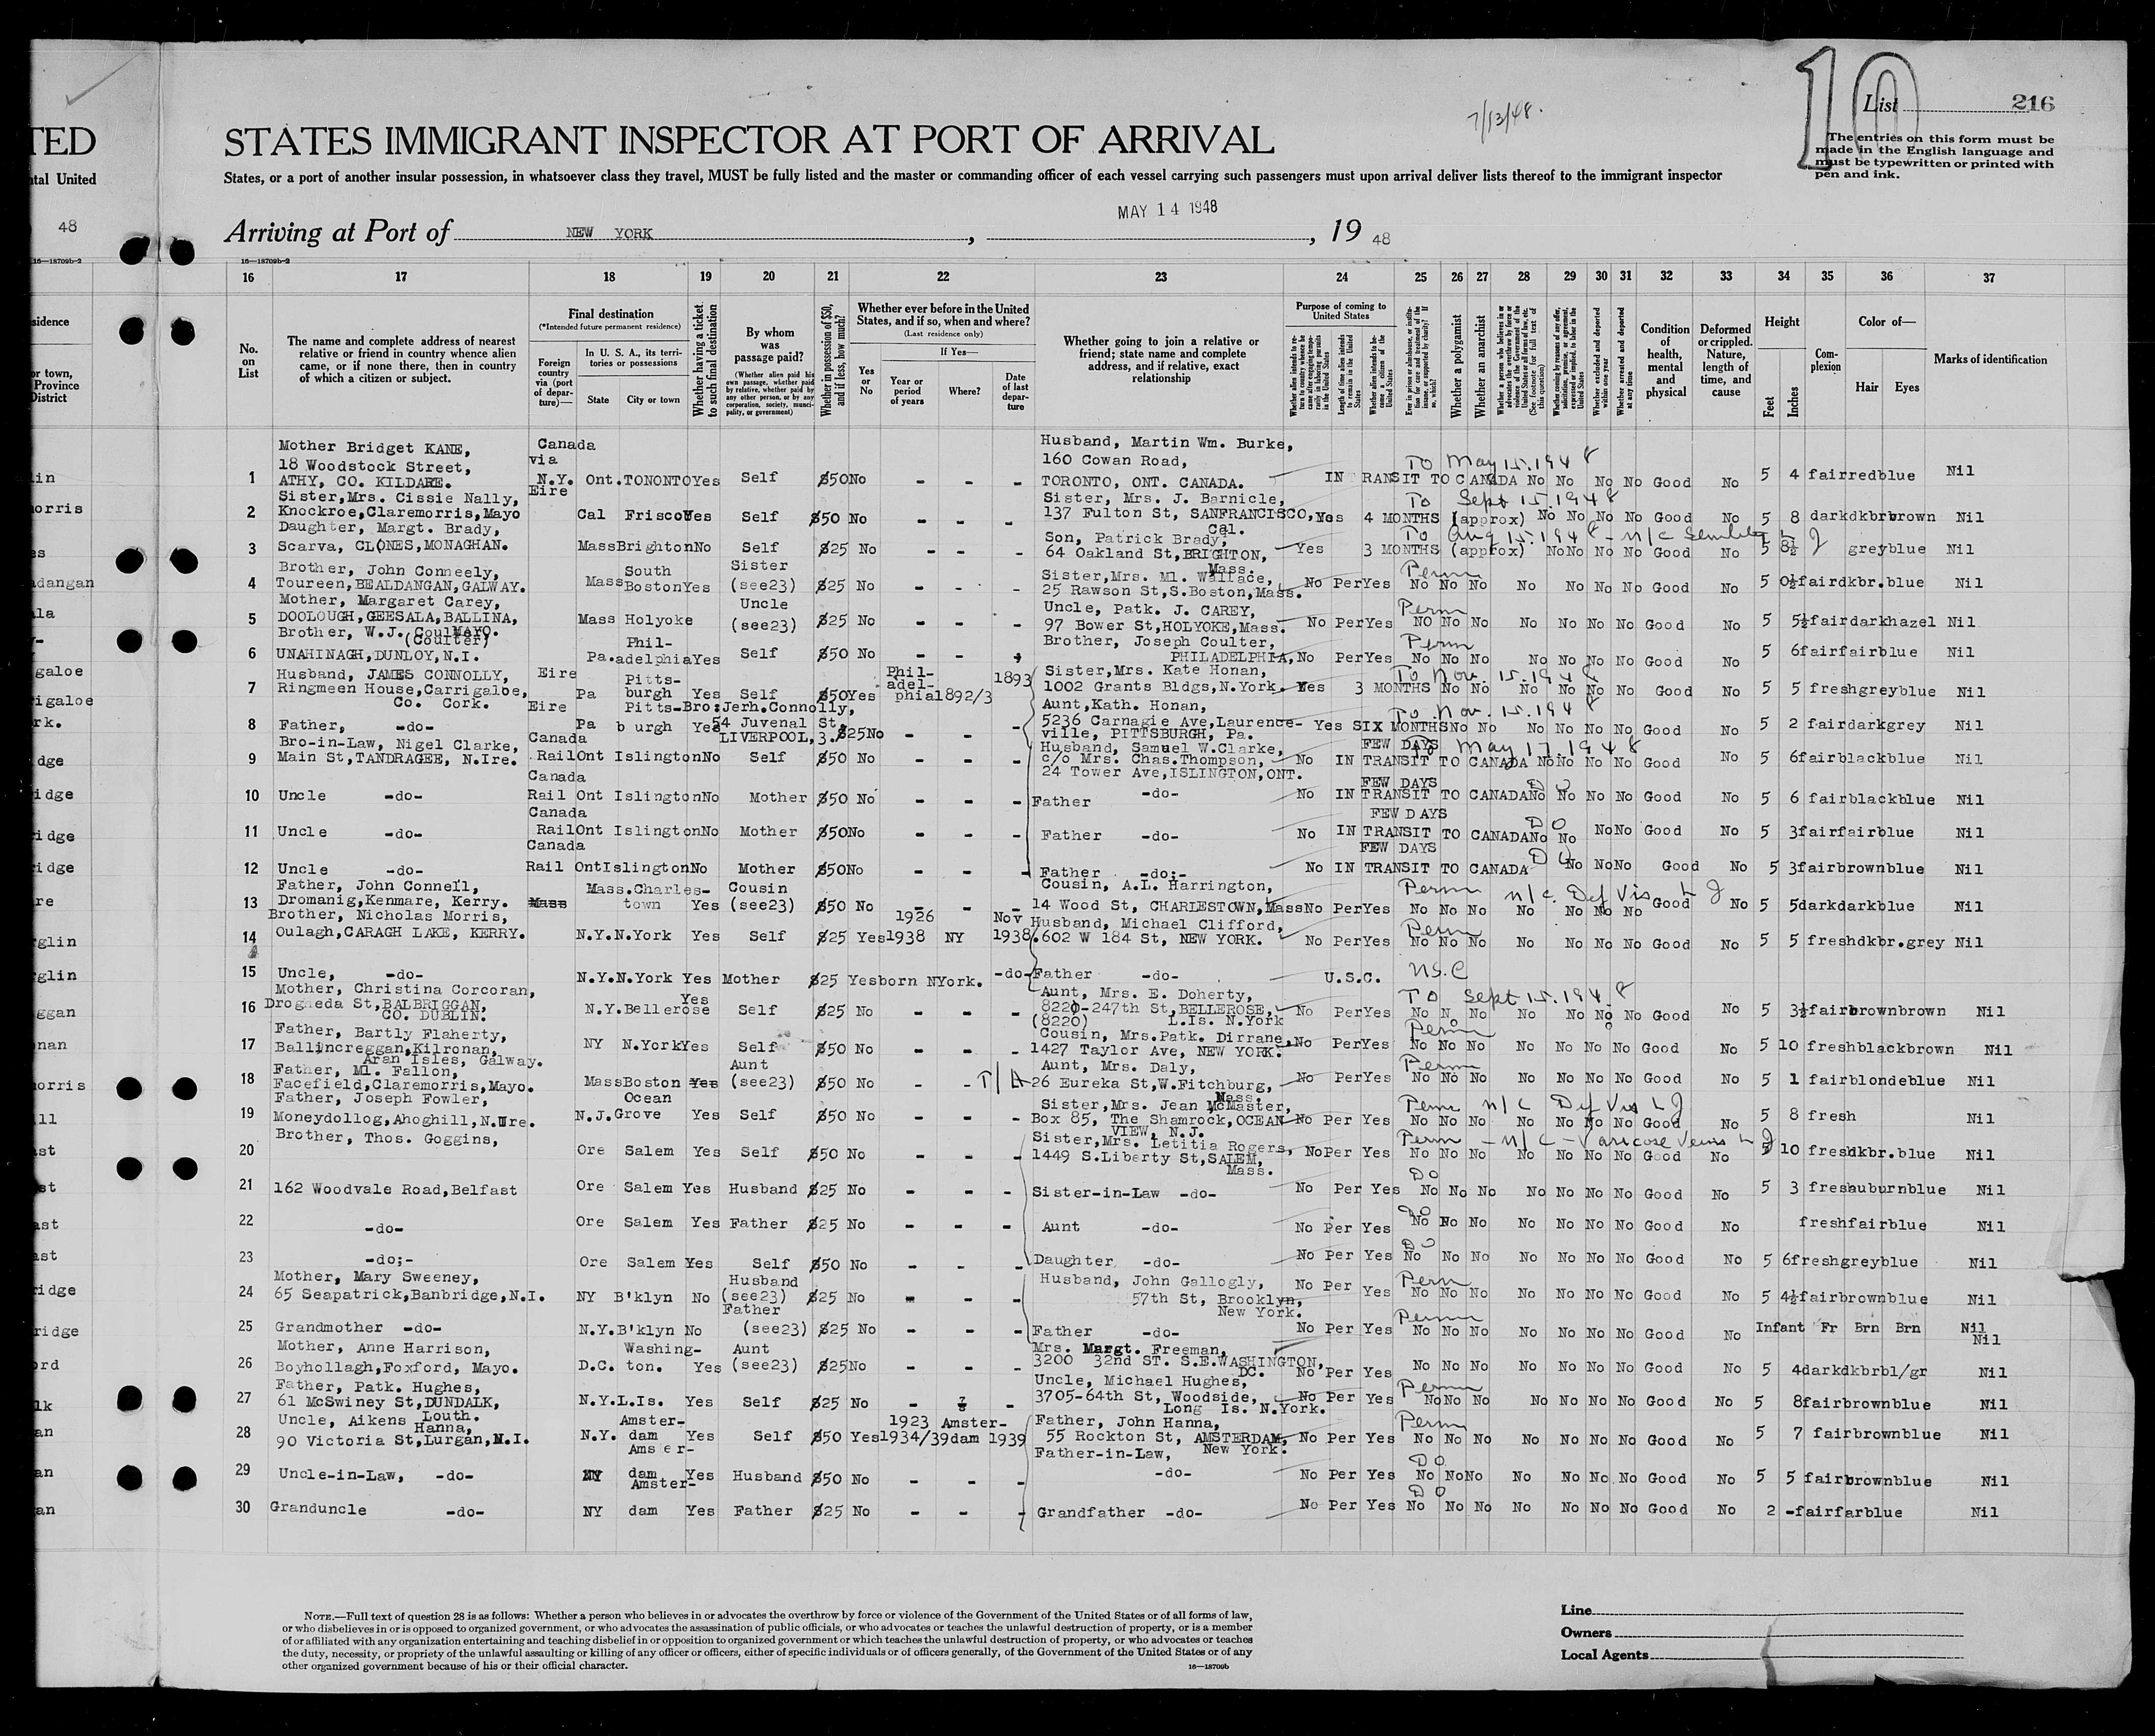 10
List 216
7/13/48.
The entries on this form must be
made in the English language and
must be typewritten or printed with
pen and ink.
TED
STATES IMMIGRANT INSPECTOR AT PORT OF ARRIVAL
ntal United
States, or a port of another insular possession, in whatsoever class they travel, MUST be fully listed and the master or commanding officer of each vessel carrying such passengers must upon arrival deliver lists thereof to the immigrant inspector
MAY 14 1948
48
Arriving at Port of NEW YORK, , 19 48
16—18709b-2
16—18709b-2
16 17 18 19 20 21 22 23 24 25 26 27 28 29 30 31 32 33 34 35 36 37
sidence
or town,
Province
District
No.
on
List
The name and complete address of nearest
relative or friend in country whence alien
came, or if none there, then in country
of which a citizen or subject.
Final destination
(*Intended future permanent residence)
Foreign
country
via (port
of depar-
ture)—
In U. S. A., its terri-
tories or possessions
State City or town
Whether having a ticket
to such final destination
By whom
was
passage paid?
(Whether alien paid his
own passage, whether paid
by relative, whether paid by
any other person, or by any
corporation, society, munici-
pality, or government)
Whether in possession of $50,
and if less, how much?
Whether ever before in the United
States, and if so, when and where?
(Last residence only)
Yes
or
No
If Yes—
Year or
period
of years
Where?
Date
of last
depar-
ture
Whether going to join a relative or
friend; state name and complete
address, and if relative, exact
relationship
Purpose of coming to
United States
Length of time alien intends
to remain in the United
States
Whether alien intends to be-
come a citizen of the
United States
Whether a polygamist
Whether an anarchist
(See footnote for full text of
this question)
Whether excluded and deported
within one year
Whether arrested and deported
at any time
Condition
of
health,
mental
and
physical
Deformed
or crippled.
Nature,
length of
time, and
cause
Height
Feet Inches
Com-
plexion
Color of—
Hair Eyes
Marks of identification
Mother Bridget KANE, Canada Husband, Martin Wm. Burke,
18 Woodstock Street, via 160 Cowan Road, To May 15.1948
lin 1 ATHY, CO. KILDARE. N.Y. Ont. TONONTO Yes Self $50 No - - - TORONTO, ONT. CANADA. IN TRANSIT TO CANADA No No No No Good No 5 4 fair red blue Nil
Sister,Mrs. Cissie Nally, Eire Sister, Mrs. J. Barnicle, To Sept 15.1948
orris 2 Knockroe,Claremorris,Mayo Cal Frisco Yes Self $50 No - - - 137 Fulton St, SANFRANCISCO, Yes 4 MONTHS (approx) No No No No Good No 5 8 dark dkbr brown Nil
Daughter, Margt. Brady, Cal.
Son, Patrick Brady, To Aug 15.1948 - n/c
es 3 Scarva, CLONES,MONAGHAN. Mass Brighton No Self $25 No - - - 64 Oakland St,BRIGHTON, Yes 3 MONTHS (approx) No No No No Good No 5 8½ grey blue Nil
Brother, John Conneely, South Sister Mass. Perm
adangan 4 Toureen,BEALDANGAN,GALWAY. Mass Boston Yes (see23) $25 No - - - Sister,Mrs. Ml. Wallace,
25 Rawson St,S.Boston,Mass. No Per Yes No No No No No No No Good No 5 0½ fair dkbr. blue Nil
Mother, Margaret Carey, Uncle Uncle, Patk. J. CAREY, Perm
ala 5 DOOLOUGH,GEESALA,BALLINA, Mass Holyoke (see23) $25 No - - - 97 Bower St,HOLYOKE,Mass. No Per Yes No No No No No No No Good No 5 5½ fair dark hazel Nil
MAYO.
Brother, W.J. Coulter (Coulter) Phil- Brother, Joseph Coulter, Perm
6 UNAHINAGH,DUNLOY,N.I. Pa. adelphia Yes Self $50 No - - PHILADELPHIA, No Per Yes No No No No No No No Good No 5 6 fair fair blue Nil
galoe Husband, JAMES CONNOLLY, Eire Pitts- Phil-adel- 1893 Sister,Mrs. Kate Honan, To Nov. 15.1948
7 Ringmeen House,Carrigaloe, Pa burgh Yes Self $50 Yes phia 1892/3 1002 Grants Bldgs,N.York. Yes 3 MONTHS No No No No No No Good No 5 5 fresh grey blue Nil
igaloe Co. Cork. Eire Pitts- Bro:Jerh.Connolly, Aunt,Kath. Honan, To Nov. 15.1948
rk. 8 Father, -do- Pa burgh Yes 54 Juvenal St, LIVERPOOL,3. $25 No - - - 5236 Carnagie Ave,Laurence-
ville, PITTSBURGH, Pa. Yes SIX MONTHS No No No No No No Good No 5 2 fair dark grey Nil
Bro-in-Law, Nigel Clarke, Canada Husband, Samuel W.Clarke, FEW DAYS To May 17.1948
dge 9 Main St,TANDRAGEE, N.Ire. Rail Ont Islington No Self $50 No - - - c/o Mrs. Chas.Thompson, No IN TRANSIT TO CANADA No No No No Good No 5 6 fair black blue Nil
24 Tower Ave,ISLINGTON,ONT.
Canada FEW DAYS Do
idge 10 Uncle -do- Rail Ont Islington No Mother $50 No - - - Father -do- No IN TRANSIT TO CANADA No No No No Good No 5 6 fair black blue Nil
Canada FEW DAYS Do
idge 11 Uncle -do- Rail Ont Islington No Mother $50 No - - - Father -do- No IN TRANSIT TO CANADA No No No No Good No 5 3 fair fair blue Nil
Canada FEW DAYS Do
idge 12 Uncle -do- Rail Ont Islington No Mother $50 No - - - Father -do:- No IN TRANSIT TO CANADA No No No Good No 5 3 fair brown blue Nil
Father, John Connell, Mass. Charles- Cousin Cousin, A.L. Harrington, Perm n/c. Def Vis
re 13 Dromanig,Kenmare, Kerry. Mass town Yes (see23) $50 No - - - 14 Wood St, CHARLESTOWN,Mass No Per Yes No No No No No No No Good No 5 5 dark dark blue Nil
Brother, Nicholas Morris, 1926 Nov Husband, Michael Clifford, Perm
glin 14 Oulagh,CARAGH LAKE, KERRY. N.Y. N.York Yes Self $25 Yes 1938 NY 1938 602 W 184 St, NEW YORK. No Per Yes No No No No No No No Good No 5 5 fresh dkbr. grey Nil
glin 15 Uncle, -do- N.Y. N.York Yes Mother $25 Yes born NYork. -do- Father -do- U.S.C. U.S.C
Mother, Christina Corcoran, Yes Aunt, Mrs. E. Doherty, To Sept 15.1948
ggan 16 Drogheda St,BALBRIGGAN, N.Y. Bellerose Self $25 No - - - 8220-247th St,BELLEROSE, No Per Yes No No No No No No No Good No 5 3½ fair brown brown Nil
CO. DUBLIN. (8220) L.Is. N.York
Father, Bartly Flaherty, Cousin, Mrs.Patk. Dirrane, Perm
nan 17 Ballincreggan,Kilronan, NY N.York Yes Self $50 No - - - 1427 Taylor Ave, NEW YORK. No Per Yes No No No No No No No Good No 5 10 fresh black brown Nil
Aran Isles, Galway.
Father, Ml. Fallon, Aunt Aunt, Mrs. Daly, Perm
orris 18 Facefield,Claremorris,Mayo. Mass Boston Yes (see23) $50 No - - - 26 Eureka St,W.Fitchburg, No Per Yes No No No No No No No Good No 5 1 fair blonde blue Nil
Mass.
Father, Joseph Fowler, Ocean Sister,Mrs. Jean McMaster, Perm n/c Def Vis
ll 19 Moneydollog,Ahoghill,N.Ire. N.J. Grove Yes Self $50 No - - - Box 85, The Shamrock,OCEAN No Per Yes No No No No No No No Good No 5 8 fresh Nil
VIEW, N.J.
Brother, Thos. Goggins, Sister,Mrs. Letitia Rogers, Perm - n/c - Varicose Veins
st 20 Ore Salem Yes Self $50 No - - - 1449 S.Liberty St,SALEM, No Per Yes No No No No No No No Good No 5 10 fresh dkbr. blue Nil
Mass.
st 21 162 Woodvale Road,Belfast Ore Salem Yes Husband $25 No - - - Sister-in-Law -do- No Per Yes Do No No No No No No No Good No 5 3 fresh auburn blue Nil
ast 22 -do- Ore Salem Yes Father $25 No - - - Aunt -do- No Per Yes Do No No No No No No No Good No fresh fair blue Nil
ast 23 -do;- Ore Salem Yes Self $50 No - - - Daughter -do- No Per Yes Do No No No No No No No Good No 5 6 fresh grey blue Nil
Mother, Mary Sweeney, Husband Husband, John Gallogly, Perm
idge 24 65 Seapatrick,Banbridge,N.I. NY B'klyn No (see23) $25 No - - - 57th St, Brooklyn, No Per Yes No No No No No No No Good No 5 4½ fair brown blue Nil
New York.
ridge 25 Grandmother -do- N.Y. B'klyn No Father (see23) $25 No - - - Father -do- No Per Yes Perm No No No No No No No Good No Infant Fr Brn Brn Nil
Mother, Anne Harrison, Washing- Aunt Mrs. Margt. Freeman, Nil
ord 26 Boyhollagh,Foxford, Mayo. D.C. ton. Yes (see23) $25 No - - - 3200 32nd ST. S.E.WASHINGTON, DC. No Per Yes No No No No No No No Good No 5 4 dark dkbr bl/gr Nil
Father, Patk. Hughes, Uncle, Michael Hughes, Perm
lk 27 61 McSwiney St,DUNDALK, N.Y. L.Is. Yes Self $25 No - - - 3705-64th St, Woodside, No Per Yes No No No No No No No Good No 5 8 fair brown blue Nil
Louth. Long Is. N.York.
Uncle, Aikens Hanna, Amster- 1923 Amster- Father, John Hanna, Perm
an 28 90 Victoria St,Lurgan,N.I. N.Y. dam Yes Self $50 Yes 1934/39 dam 1939 55 Rockton St, AMSTERDAM, No Per Yes No No No No No No No Good No 5 7 fair brown blue Nil
New York.
Amster- Father-in-Law, Do
an 29 Uncle-in-Law, -do- NY dam Yes Husband $50 No - - - -do- No Per Yes No No No No No No No Good No 5 5 fair brown blue Nil
Amster- Do
an 30 Granduncle -do- NY dam Yes Father $25 No - - - Grandfather -do- No Per Yes No No No No No No No Good No 2 - fair far blue Nil
NOTE.—Full text of question 28 is as follows: Whether a person who believes in or advocates the overthrow by force or violence of the Government of the United States or of all forms of law,
or who disbelieves in or is opposed to organized government, or who advocates the assassination of public officials, or who advocates or teaches the unlawful destruction of property, or is a member
of or affiliated with any organization entertaining and teaching disbelief in or opposition to organized government or which teaches the unlawful destruction of property, or who advocates or teaches
the duty, necessity, or propriety of the unlawful assaulting or killing of any officer or officers, either of specific individuals or of officers generally, of the Government of the United States or of any
other organized government because of his or their official character.
16—18709b
Line
Owners
Local Agents